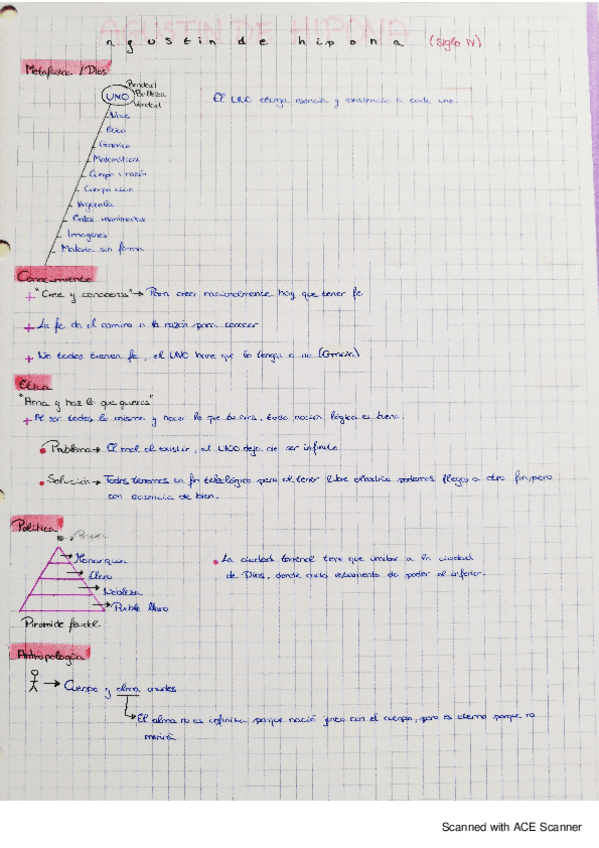 AGUSTIN DE HIPONA
agustin de hipona (siglo IV)
Metafísica / Dios
Bondad
UNO Belleza
Verdad
El UNO otorga esencia y existencia a cada uno.
Nous
Matemáticas
Cuerpo y razón
Cuerpo
Vegetales
inanimados
Imagenes
Materia sin forma
Conocimiento
+ "Cree y conoceras" → Para creer racionalmente hay que tener fe
+ La fe da el camino a la razón para conocer
+ No todos tienen fe, el UNO hace que lo tenga o no
Etica
"Ama y haz lo que quieras"
+ Al ser todos lo mismo y hacer lo que tu seas, toda acción lógica es buena.
• Problema → El mal al existir, el UNO deja de ser infinito
• Solución → Todos tenemos un fin teleológico pero al tener libre albedrío podemos llegar a otro fin, pero
con ausencia de bien.
Política
Papa
Monarquia
Clero
Nobleza
Pueblo llano
Piramide feudal
• La ciudad terrenal tiene que imitar a la ciudad
de Dios, donde cada estamento da poder al inferior.
Antropología
→ Cuerpo y alma unidos
El alma no es infinita porque nació junto con el cuerpo, pero es eterna porque no
morirá.
Scanned with ACE Scanner